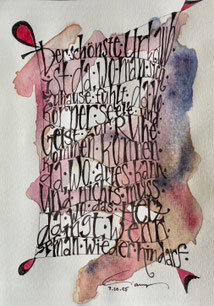 Der schönste Urlaub
ist da, wo man sich
zuhause fühlt, da wo
Körper, Seele und
Geist zur Ruhe
kommen können.
Da, wo alles kann
und nichts muss
das Herz
wenn
man wieder hin darf.